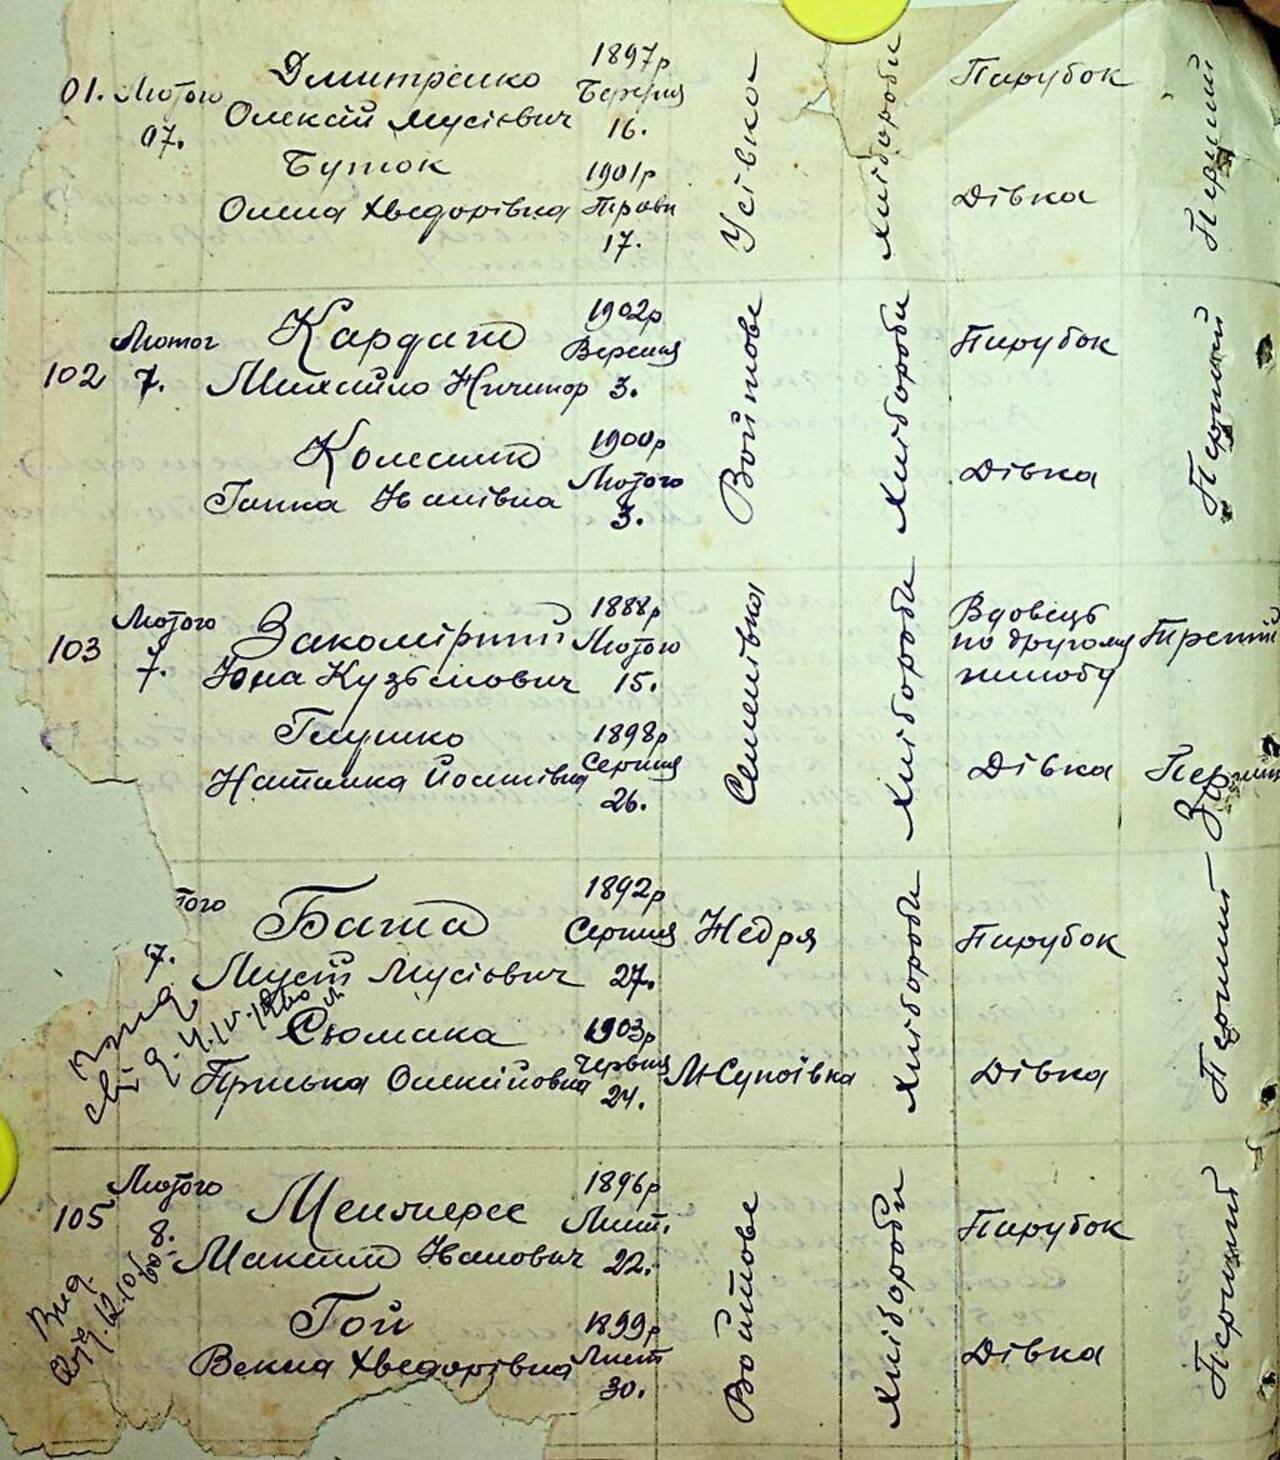 01. Лютого 07.
Дмитренко
Олексій Мусієвич
1897р
Березня
16.
Усівка
Хлібороби
Парубок
Перший
Буток
Олена Хведорівна
1901р
Травн
17.
Дівка
102
Лютог
7.
Кардаш
Михайло Ничипор
1902р
Вересня
3.
Войтове
Хлібороби
Парубок
Перший
Колесник
Ганка Іванівна
1900р
Лютого
3.
Дівка
103
Лютого
7.
Закомірний
Юна Кузьмович
1888р
Лютого
15.
Семенівка
Хлібороби
Вдовець
по другому
шлюбу
Третій
Глушко
Наталка Йосипівна
1898р
Серпня
26.
Дівка
Перший
того
7.
Баша
Мусій Мусієвич
1892р
Серпня
27.
Недря
Хлібороби
Парубок
Перший
Сюмака
Прилька Олексійовна
1903р
Червня
24.
М-Супоївка
Дівка
105
Лютого
8.
Менжерес
Максим Іванович
1896р
Лист.
22.
Войтове
Хлібороби
Парубок
Перший
Гой
Векла Хведорівна
1899р
Лист
30.
Дівка